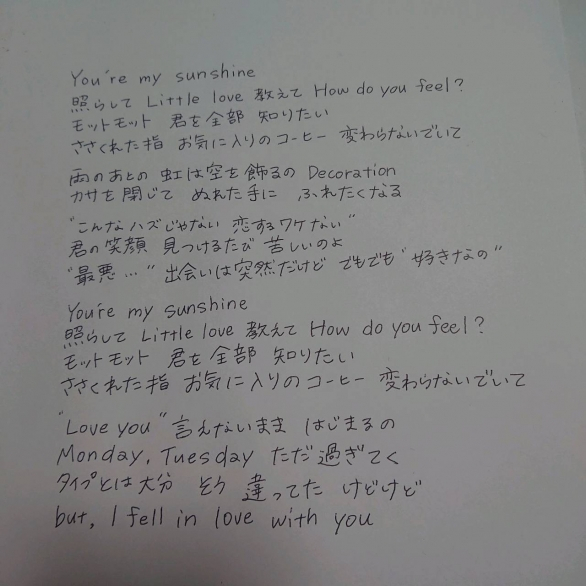 You're my sunshine
照らして Little love 教えて How do you feel?
モットモット 君を全部 知りたい
ささくれた指 お気に入りのコーヒー 変わらないでいて
雨のあとの 虹は空を飾るの Decoration
カサを閉じて ぬれた手に ふれたくなる
"こんなハズじゃない 恋するワケない"
君の笑顔 見つけるたび 苦しいのよ
"最悪…" 出会いは突然だけど でもでも "好きなの"
You're my sunshine
照らして Little love 教えて How do you feel?
モットモット 君を全部 知りたい
ささくれた指 お気に入りのコーヒー 変わらないでいて
"Love you" 言えないまま はじまるの
Monday, Tuesday ただ過ぎてく
タイプとは大分 そう 違ってた けどけど
but, I fell in love with you